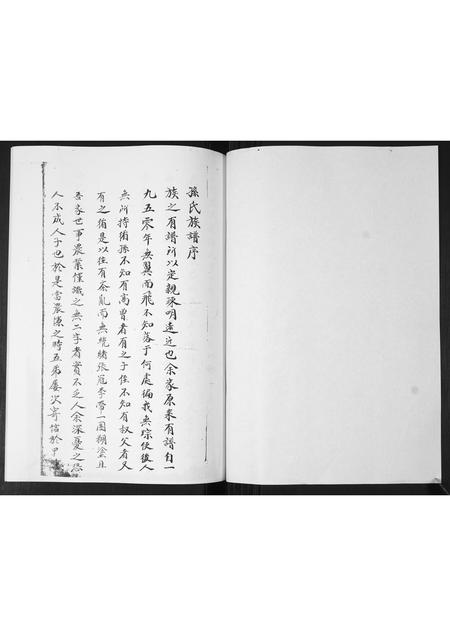 孫氏族譜序
族之有譜所以定親疎明遠近也余家原來有譜自一
九五零年無翼而飛不知落于何處徧我無踪使後人
無所持循孫不知有高曾者有之子侄不知有叔父者又
有之循是以往有紊亂而無統緒張冠李帶一團糊塗且
吾家世事農業僅識之無二字者實不乏人余深憂之恐
人不成人子也於是當農隙之時五弟屡次寄信於甲